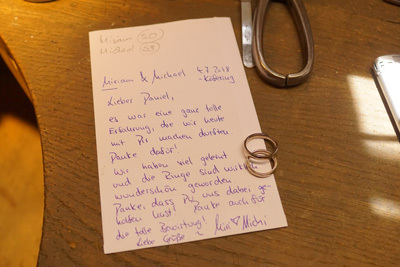 Miriam 50
Michael 59
Miriam & Michael 4.7.2018
Lieber Daniel,
es war eine ganz tolle
Erfahrung, die wir heute
mit Dir machen durften
Danke dafür!
Wir haben viel gelernt
und die Ringe sind wirklich
wunderschön geworden
Danke, dass Du uns dabei ge-
holfen hast! Danke auch für
die tolle Bewirtung!
Liebe Grüße ~ Miri ♡ Michi